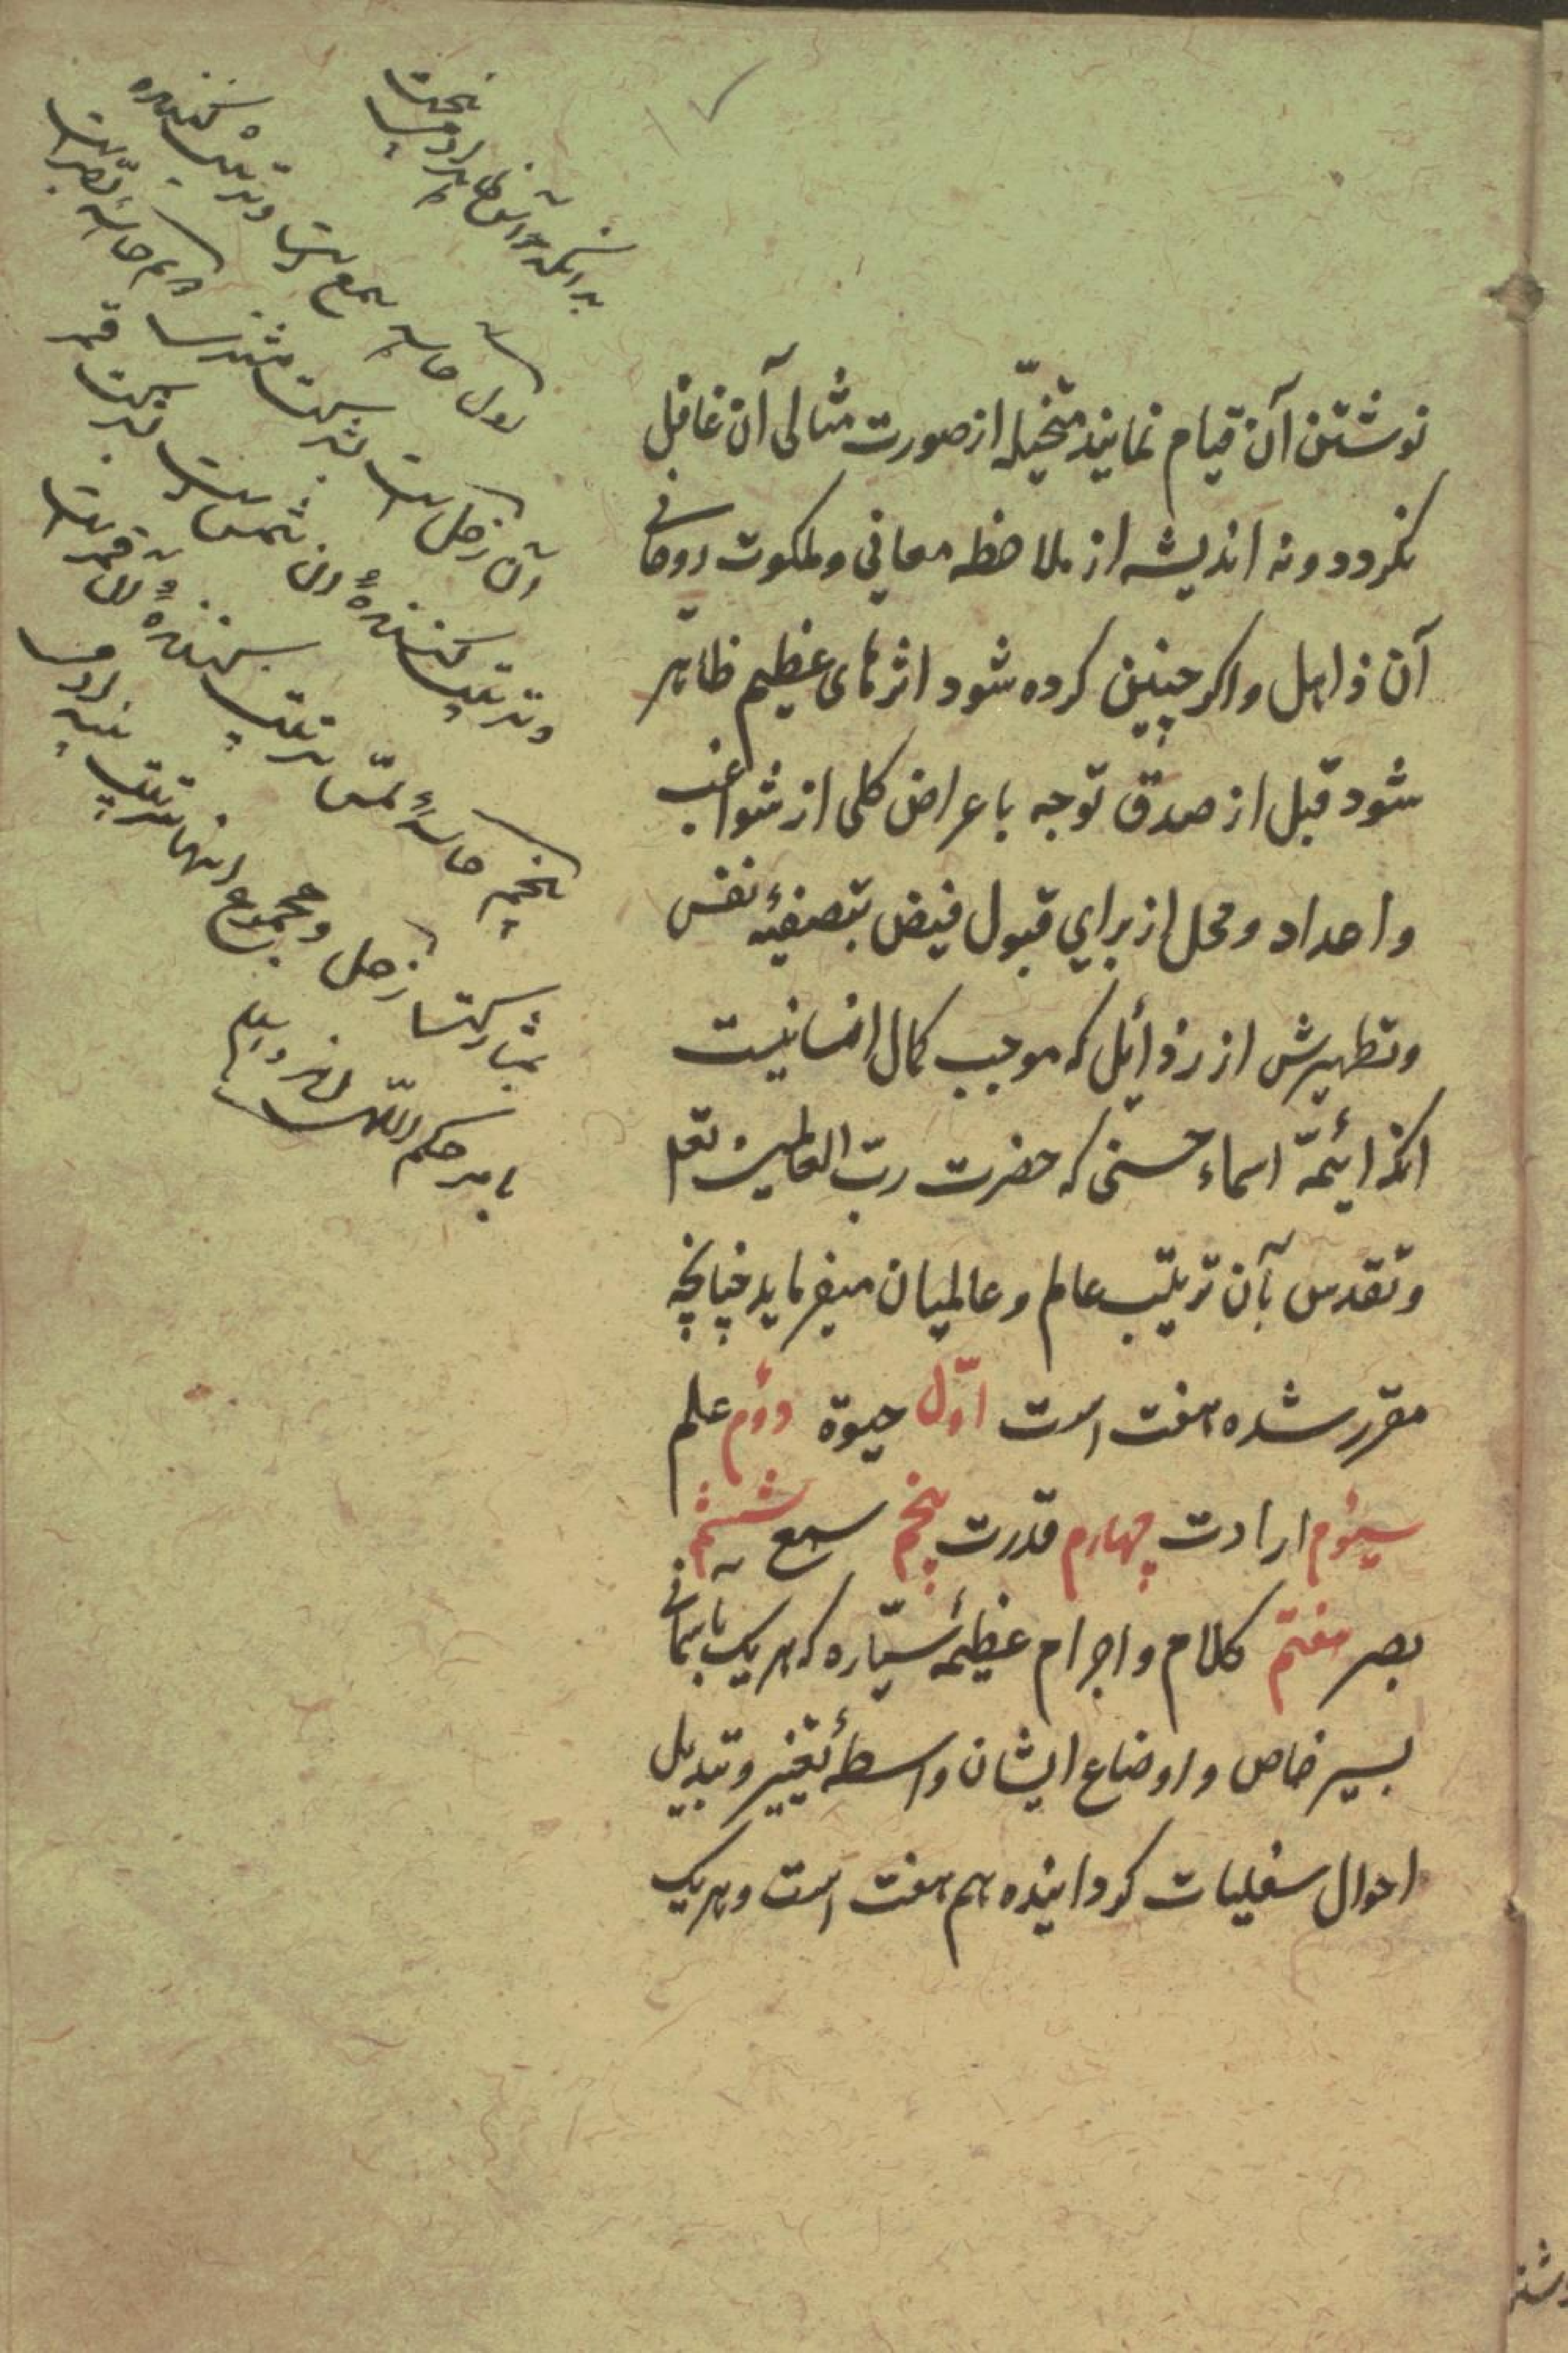 نوشتن آن قیام نمایند متخیّله از صورت مثالی آن غافل
نکردد ونه اندیشه از ملاحظه معانی وملکوت روحانی
آن ذاهل واکر چنین کرده شود اثرهای عظیم ظاهر
شود قبل از صدق توجه باعراض کلی از شواغب
واهداد ومحل از برای قبول فیض بتصفیهٔ نفس
وتطهیرش از رذائل که موجب کمال انسانیست
انکه ائیمّهٔ اسماء حسنی که حضرت ربّ العالمین تعه
وتقدس بآن ترتیب عالم وعالمیان میفرماید چنانچه
مقرر شده هفت است اوّل حیوة دوّم علم
سیوم ارادت چهارم قدرت پنجم سمع ششم
بصر هفتم کلام واجرام عظیمهٔ سیّاره که هریک بآسمانی
بسیر خاص واوضاع ایشان واسطهٔ تغییر وتبدیل
احوال سفلیات کردانیده هم هفت است وهریک
بدانکه حواس ظاهر آدمی پنجست
اول حاسه سمع است وتربیت کننده
آن زحل است بشرکت مشتری دویم حاسهٔ بصر است
وتربیت کنندهٔ آن شمس است بشرکت قمر
تربیت کنندهٔ آن قمر است
پنجم حاسهٔ لمس
بمشارکت زحل ومجموع اینها تربیت